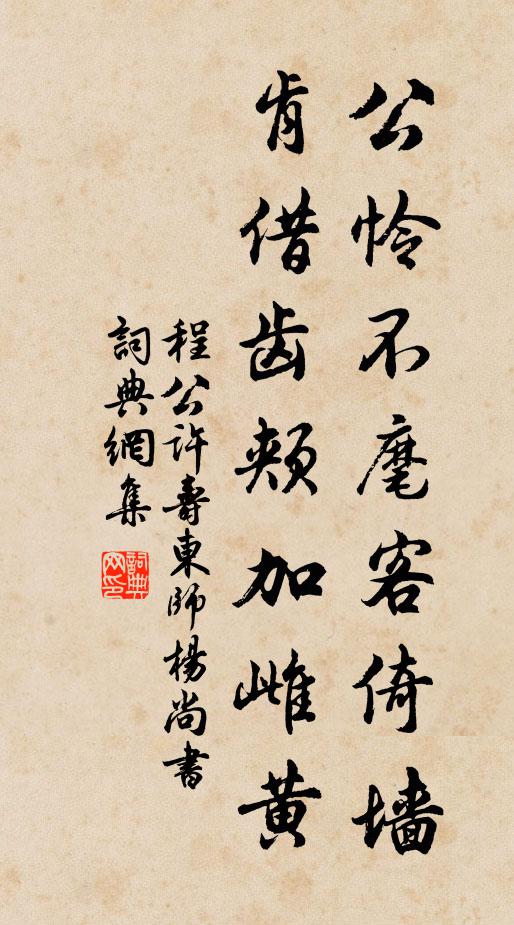 公怜不麾客倚墙
肯借齿颊加雌黄
程公許壽東師楊尚書
詞典網集
詞典网印